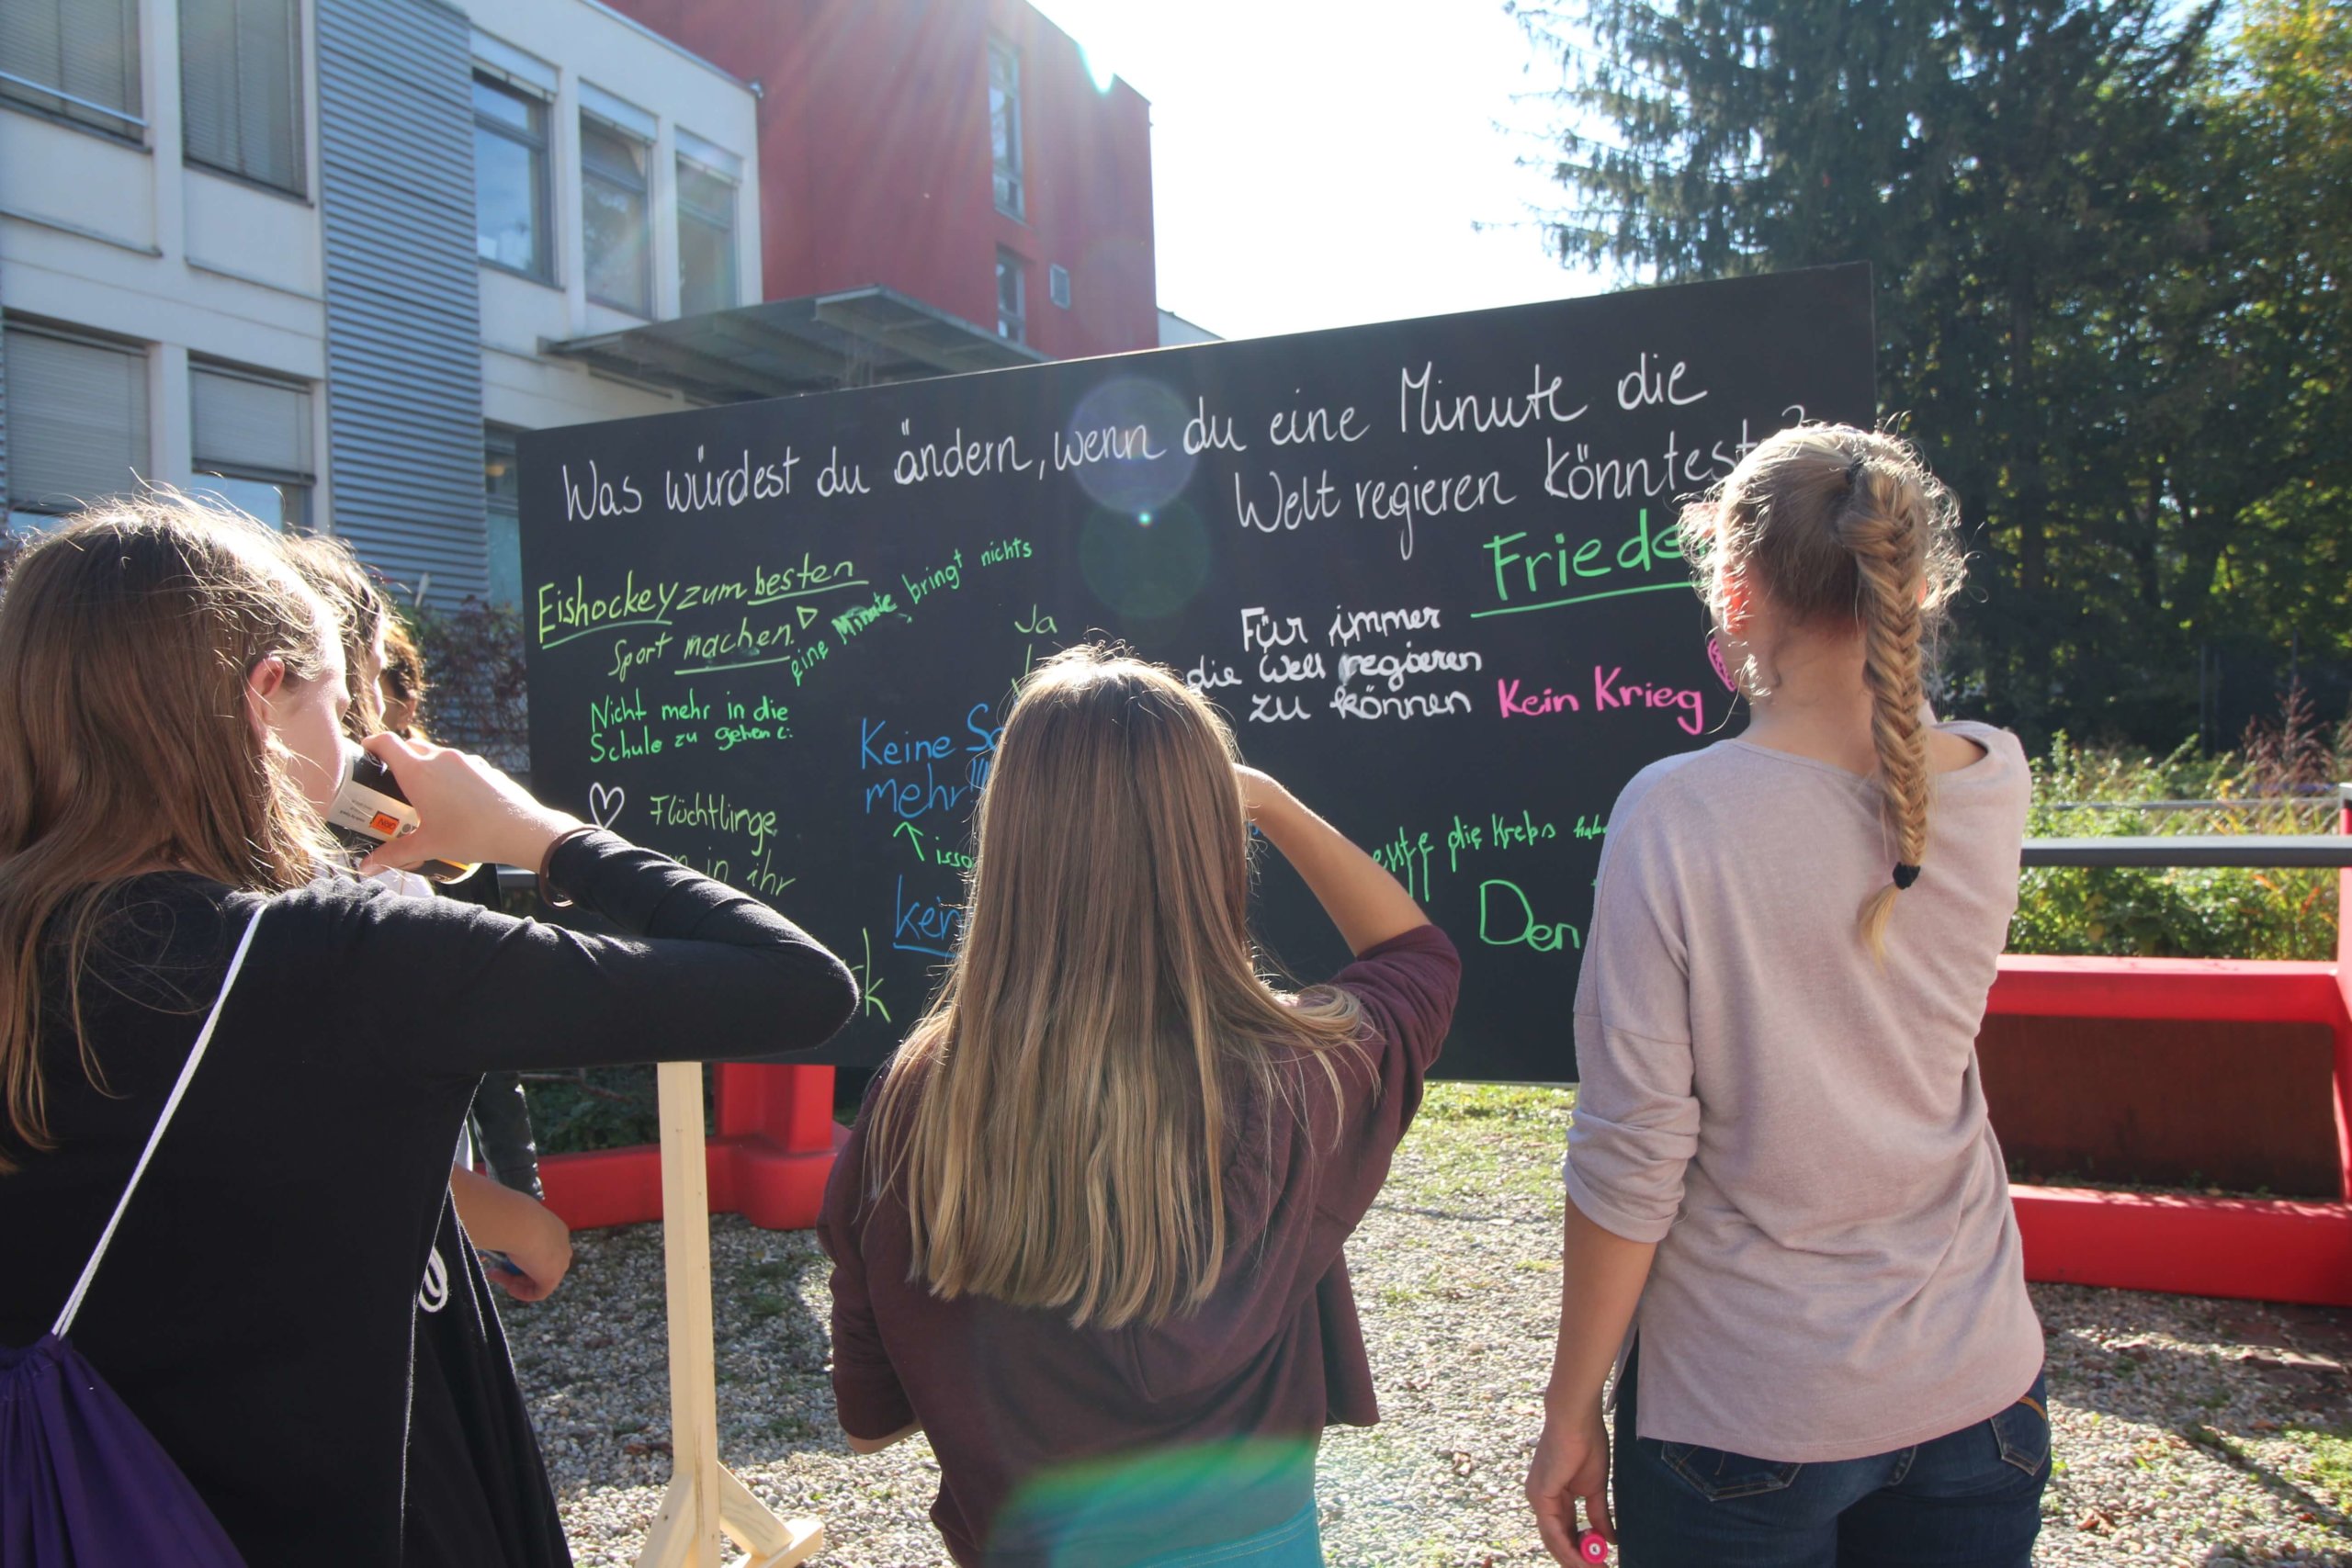 Was würdest du ändern, wenn du eine Minute die
Welt regieren könntest?
Eishockey zum besten
Sport machen!
eine Minute bringt nichts
Nicht mehr in die
Schule zu gehen c:
Flüchtlinge
in ihr
Ja
Keine
mehr !!!
Frieden
Für immer
die Welt regieren
zu können
Kein Krieg
die Krebs
Den